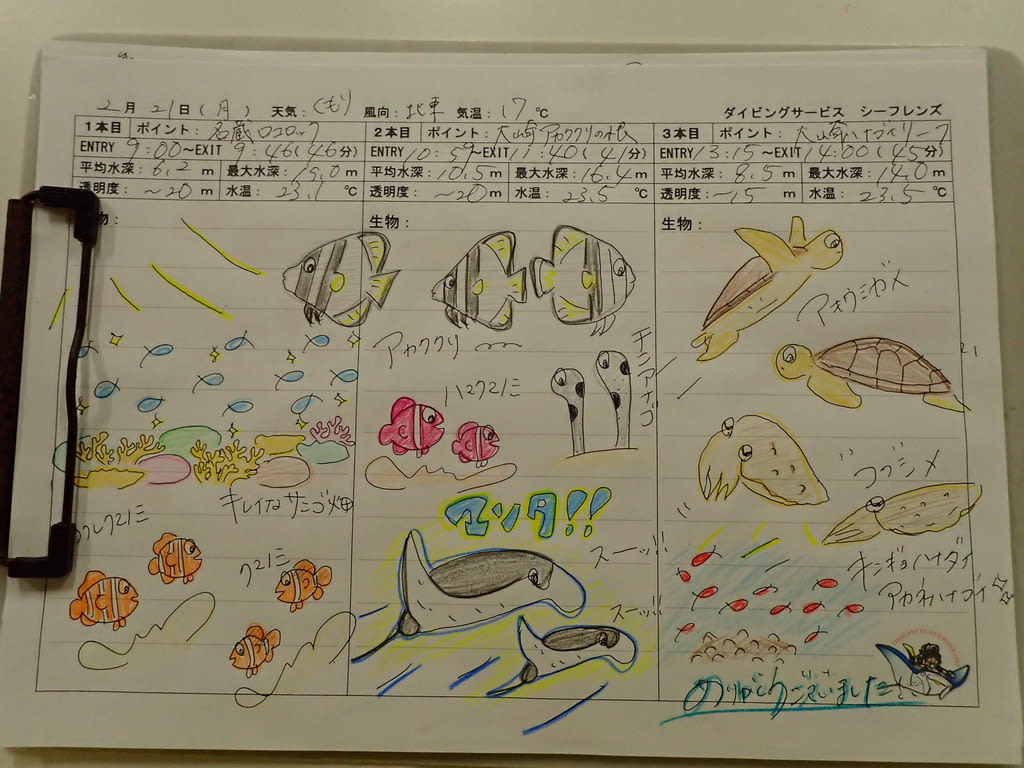 2月 21日(月) 天気:くもり 風向:北東 気温:17℃ ダイビングサービス シーフレンズ
1本目 ポイント:名蔵
ENTRY 9:00~EXIT 9:46(46分)
平均水深:6.2m 最大水深:15.0m
透明度:~20m 水温:23.1℃
2本目 ポイント:大崎アカククリの根
ENTRY 10:59~EXIT 11:40(41分)
平均水深:10.5m 最大水深:16.4m
透明度:~20m 水温:23.5℃
3本目 ポイント:大崎ハナゴイリーフ
ENTRY 13:15~EXIT 14:00(45分)
平均水深:8.5m 最大水深:14.0m
透明度:~15m 水温:23.5℃
物:
キレイなサンゴ畑
クマノミ
生物:
アカククリ
ハマクマノミ
チンアナゴ
マンタ!!
スーッ
スーッ
生物:
アオウミガメ
コブシメ
キンギョハナダイ
アカネハナゴイ
ありがとうございました